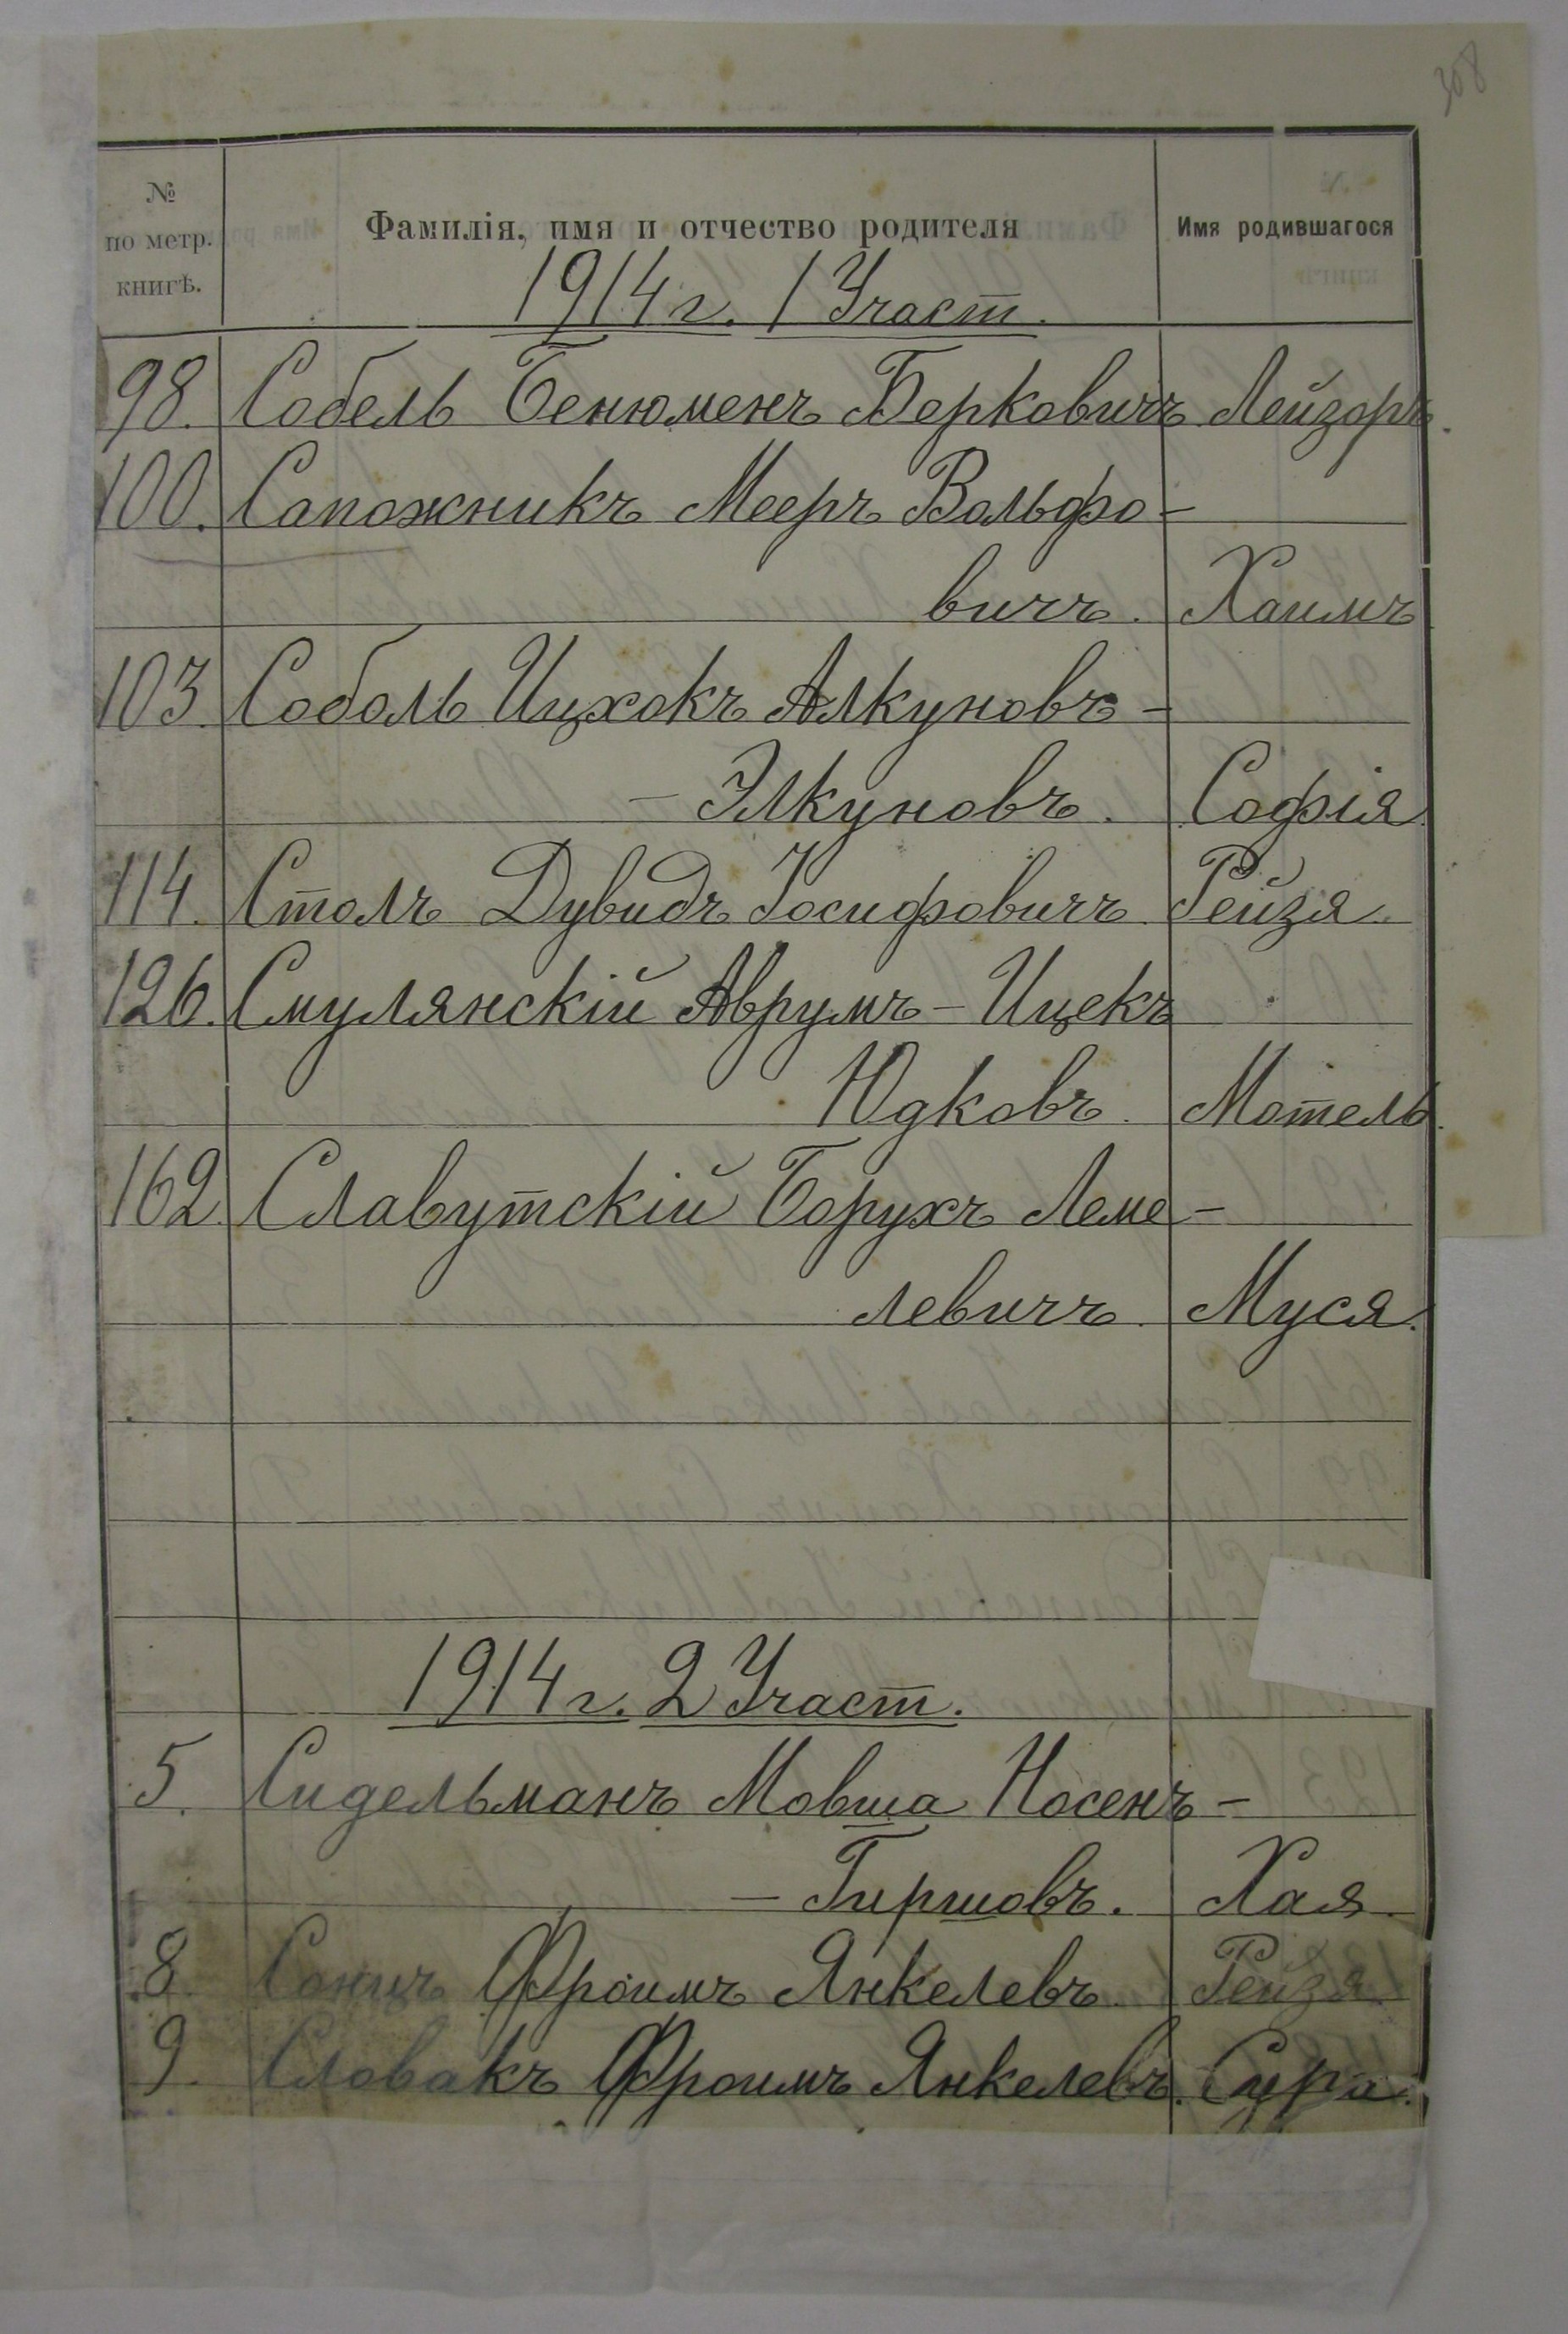 308
№ по метр. книгѣ. Фамилія, имя и отчество родителя Имя родившагося
1914 г. 1 Участ.
98. Собель Бенюменъ Берковичъ Лейзоръ.
100. Сапожникъ Мееръ Вольфо-
вичъ. Хаимъ
103 Соболь Ицхокъ Алкуновъ-
- Элкуновъ. Софія
114. Столъ Дувидъ Іосифовичъ. Рейзя.
126. Смулянскій Аврумъ-Ицекъ
Юдковъ. Мотель.
162. Славутскій Борухъ Леме-
левичъ. Муся.
1914 г. 2 Участ.
5. Сидельманъ Мовша Носенъ-
- Гиршовъ. Хая.
8. Фроимъ Янкелевъ. Рейзя
9. Словакъ Фроимъ Янкелевъ. Сура.